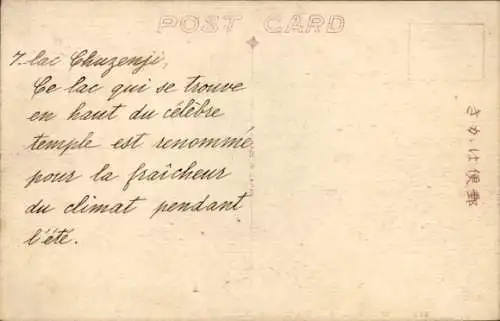 POST CARD
7. lac Chuzenji,
Ce lac qui se trouve
en haut du célèbre
temple est renommé
pour la fraîcheur
du climat pendant
l'été.
きかは便郵